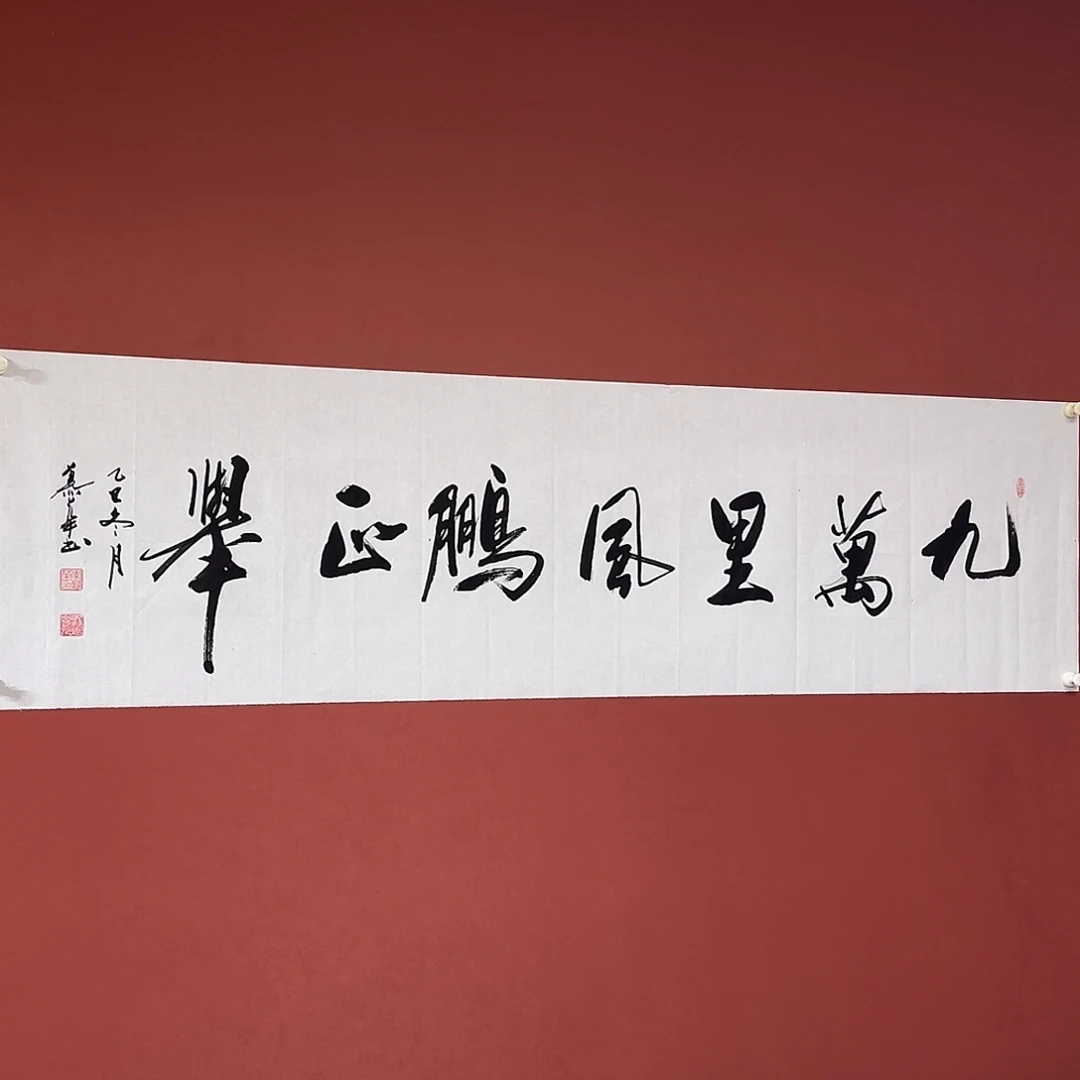 九萬里風鵬正舉
乙巳冬月